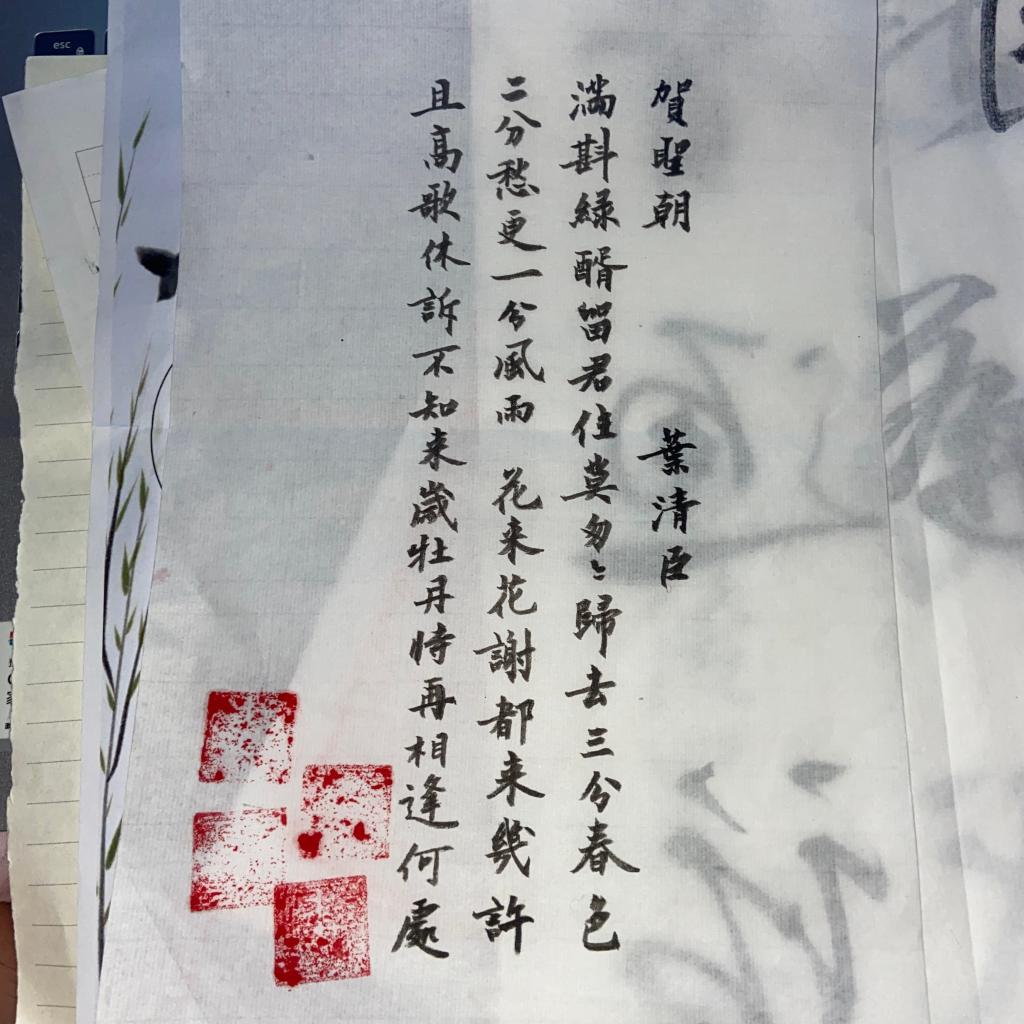 賀聖朝 葉清臣
滿斟綠醑留君住莫匆〻歸去三分春色
二分愁更一分風雨 花来花謝都来幾許
且高歌休訴不知来歲牡丹時再相逢何處
esc